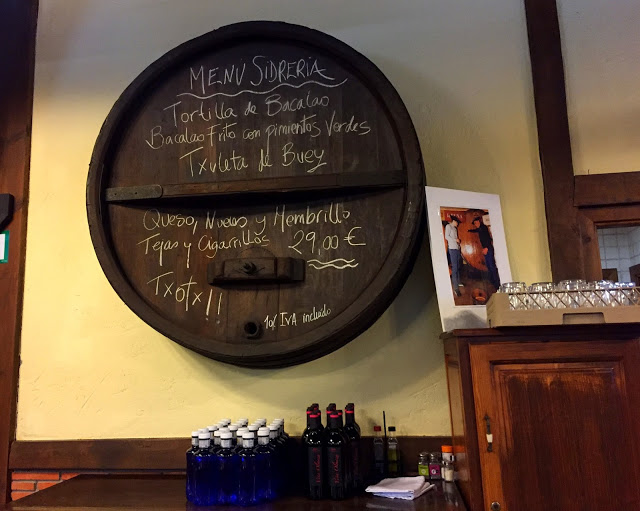 MENU SIDRERIA
Tortilla de Bacalao
Bacalao Frito con pimientos Verdes
Txuleta de Buey
Queso, Nueces y Membrillo
Tejas y Cigarrillos 29,00 €
Txotx!!
10% IVA incluido